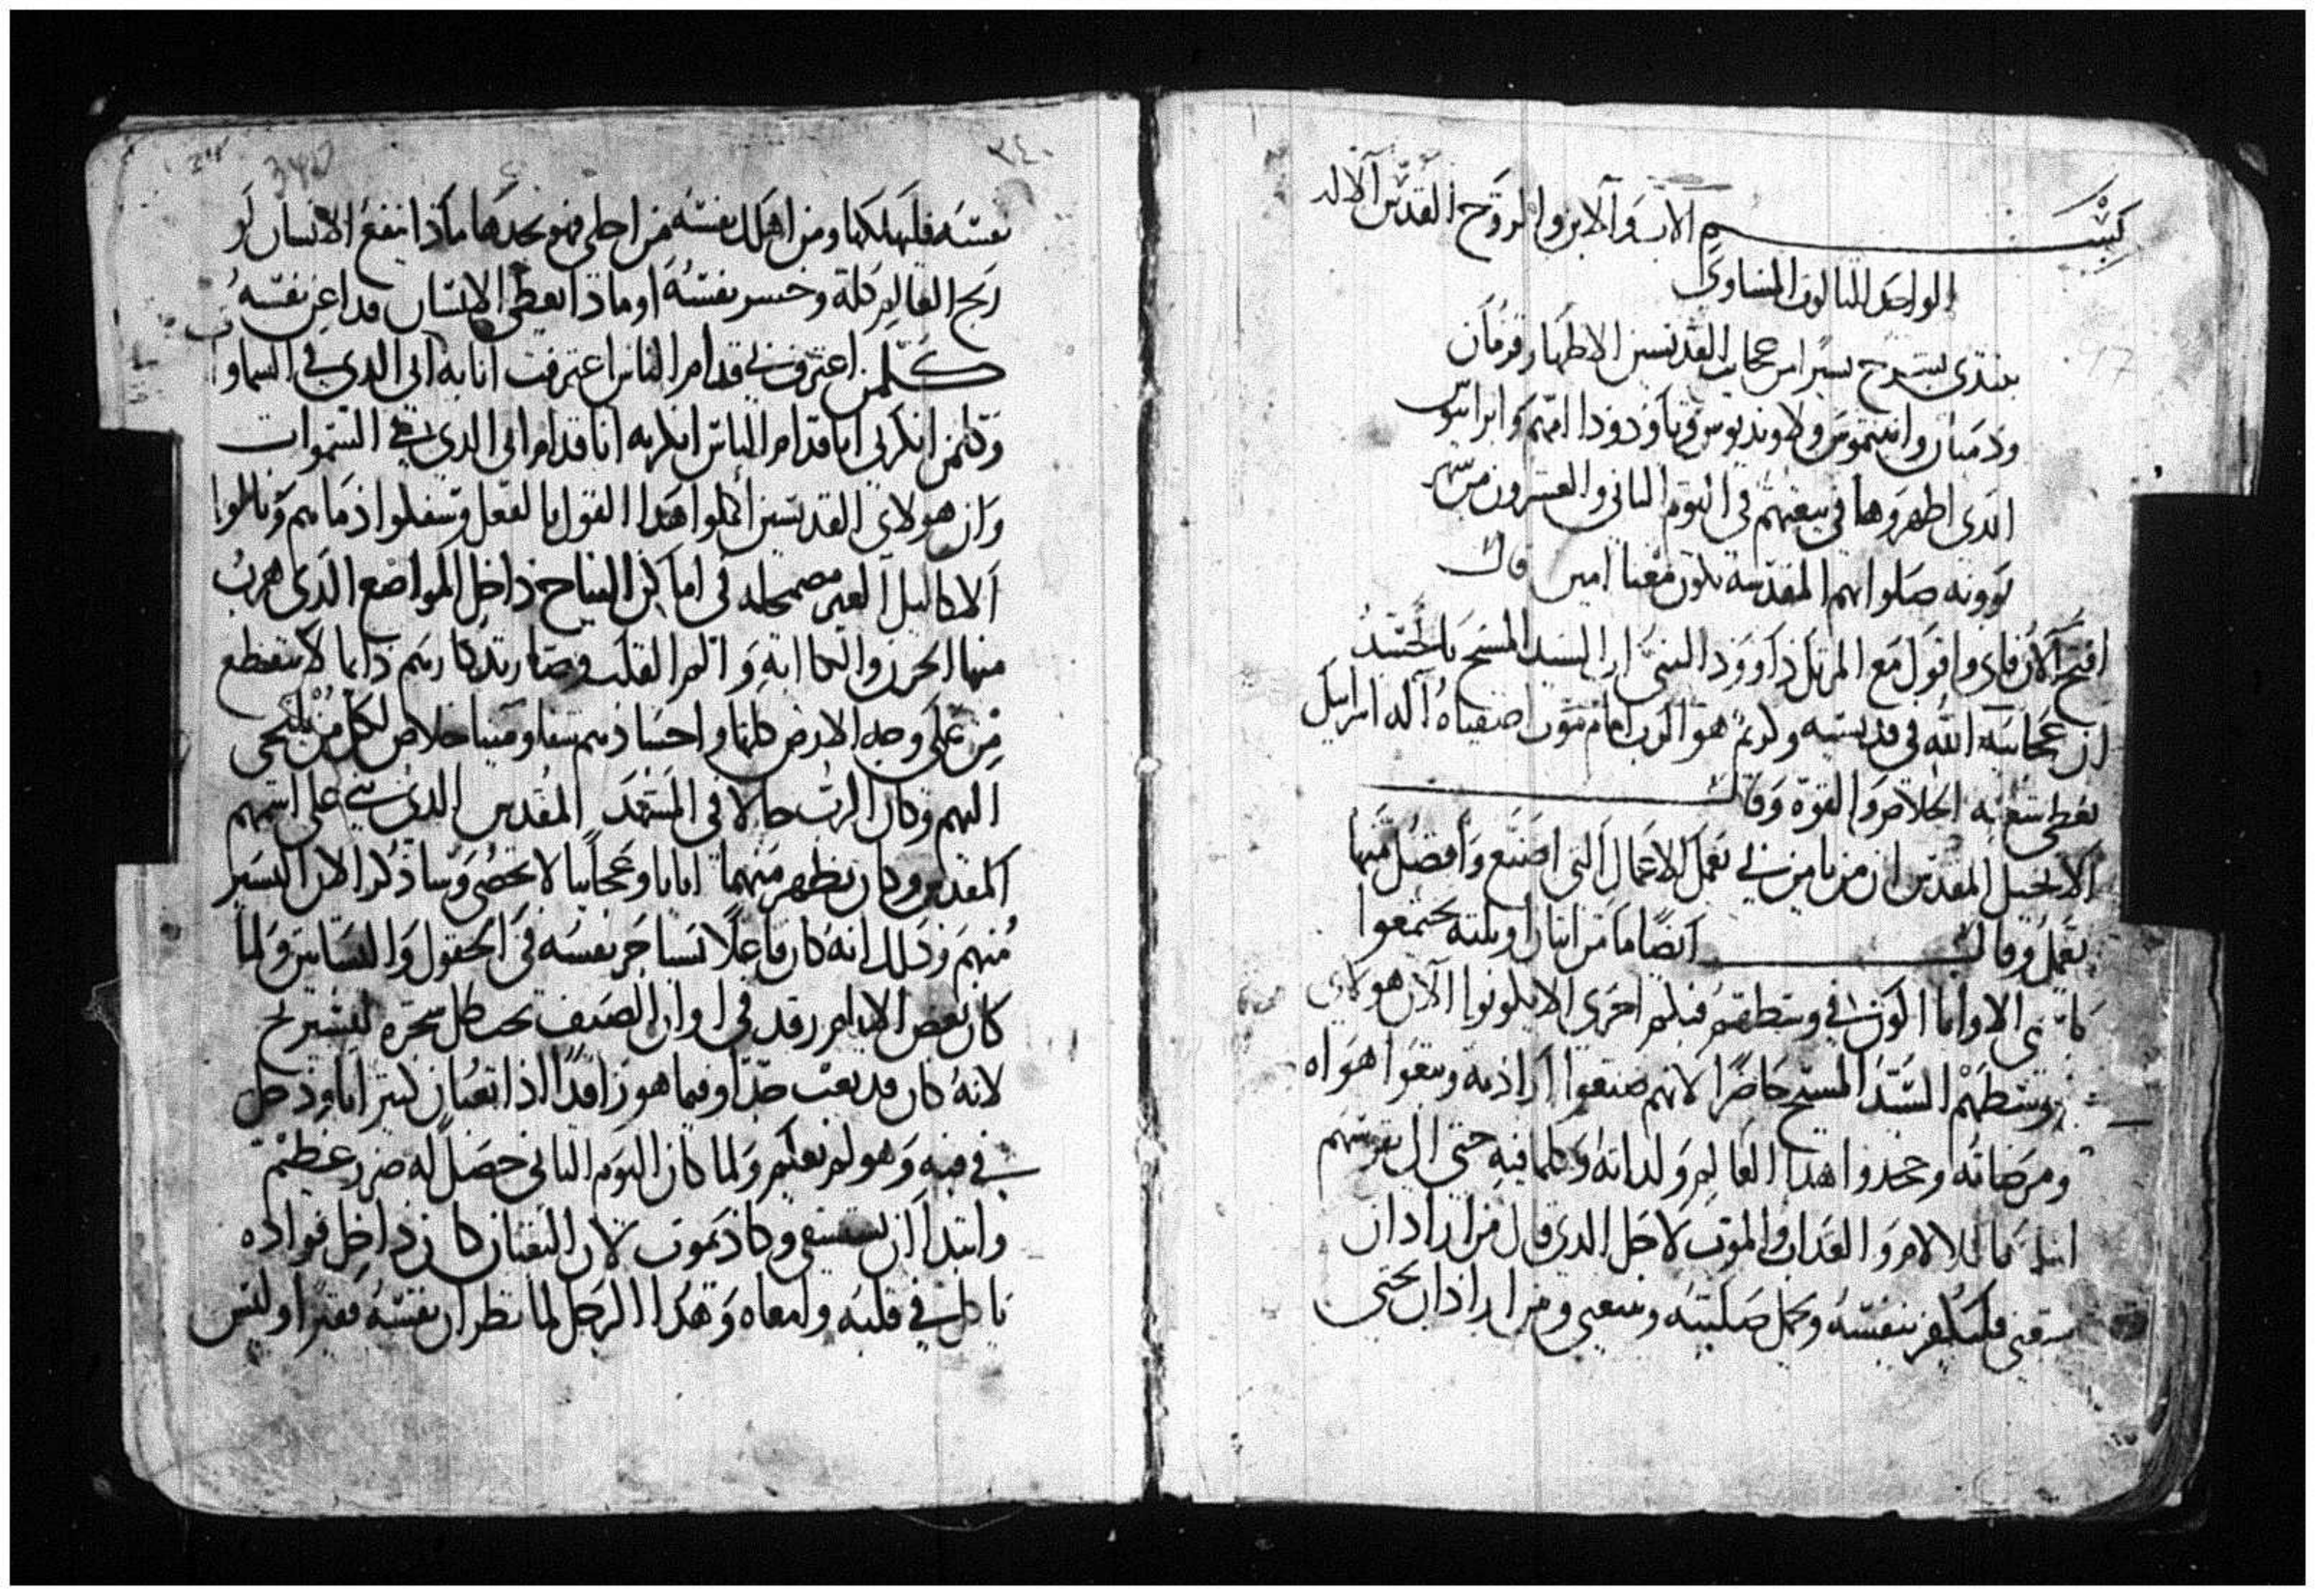 بســـــــم الاب والابن والروح القدس الاله
الواحد الثالوت المتساوي
نبتدي بشرح يسيرا من عجايب القديسين الاطهار قزمان
ودميان وانتيموس ولاونديوس وتاودودا امهم وابرابيوس
الدى اظهروها في بيعتهم في اليوم التاني والعشرون من شهر
بوونه صلواتهم المقدسه تكون معنا امين قال
افتح الان فاي واقول مع المرتل داوود النبي ان السيد المسيح بالجسد
ان عجايب الله في قديسيه وكريم هو الرب امام موت اصفياه اله اسراييل
يعطي شعبه الخلاص والقوه وقال
الانجيل المقدس ان من يامن بي يعمل الاعمال التي اصنع وافضل منها
يعمل وقال ايضا ما من اتنان او تلته يجتمعوا
باسمي الا وانا اكون في وسطهم فبكم احرى الا يكونوا الان هولاى
وسطهم السيد المسيح حاضرا لانهم صنعوا ارادته وتبعوا هواه
ومرضاته وجحدوا هدا العالم ولداته وكلما فيه حتى ان نفوسهم
للالام والعداب والموت لاجل الدى قال من اراد ان
يتبعني فليكفر بنفسه ويحمل صليبه ويتبعني ومن اراد ان يحيى
٣٤٠
نفسه فليهلكها ومن اهلك نفسه من اجلي فهو يجدها مادا ينفع الانسان لو
ربح العالم كله وخسر نفسه او مادا يعطي الانسان فدا عن نفسه
كلمن اعترف بي قدام الناس اعترفت انا به ابى الدى في السماوات
وكلمن انكرني انا قدام الناس انكرته انا قدام ابى الدى في السموات
وان هولاى القديسين اكملوا هدا القول بالفعل وسفكوا دماهم ونالوا
الاكاليل الغير مضمحله في اماكن النياح داخل المواضع الدى هرب
منها الحزن والكاابه والم القلب وصار تدكارهم دايما لا ينقطع
من على وجه الارض كلها واجسادهم شفا ومينا خلاص لكل من يلتجى
اليهم وكان الرب حالا في المشهد المقدس الدى بني على اسمهم
المقدس وكان يظهر منهما اياتا وعجايبا لا تحصى وسادكر الان اليسير
منهم ودلك انه كان فاعلا يستاجر نفسه في الحقول والبساتين ولما
كان بعض الايام رقد في اوان الصيف تحت ظل شجره ليستريح
لانه كان قد تعب جدا وفيما هو راقدا ادا تعبان كبير اتا ودخل
في فيه وهو لم يعلم ولما كان اليوم التاني حصل له ضرر عظيم
وابتدا ان يستسقي وكاد يموت لان التعبان كان داخل فواده
ياكل في قلبه وامعاه وهدا الرجل لما نظر ان نفسه فقيرا وليس